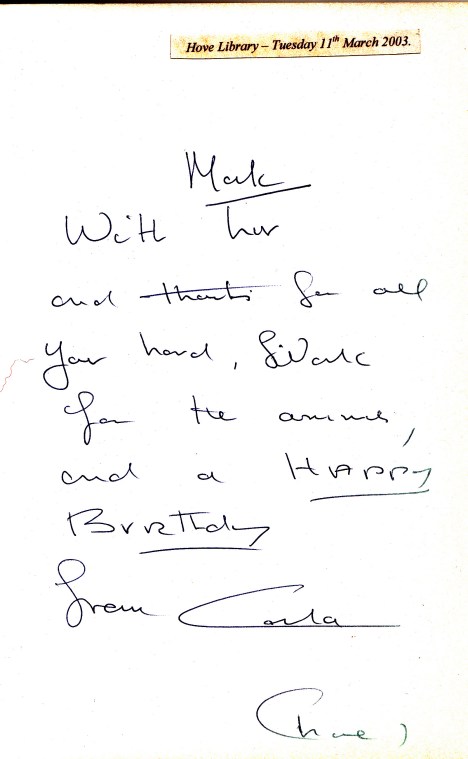 Hove Library – Tuesday 11th March 2003.
Mark
With luv
and thanks for all
your hard, Work
for the animals,
and a HAPPY
BirthDay
from Carla